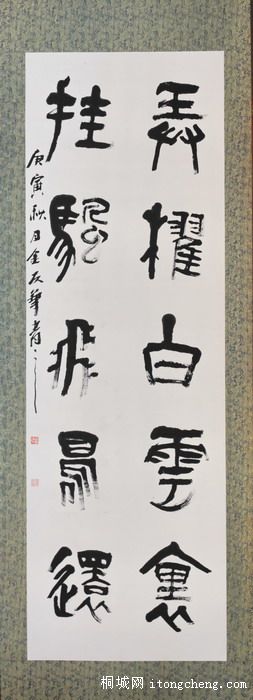 弄櫂白雲裏
挂颿飛鳥還
庚寅秋月金友華書之
桐城网 itongcheng.com